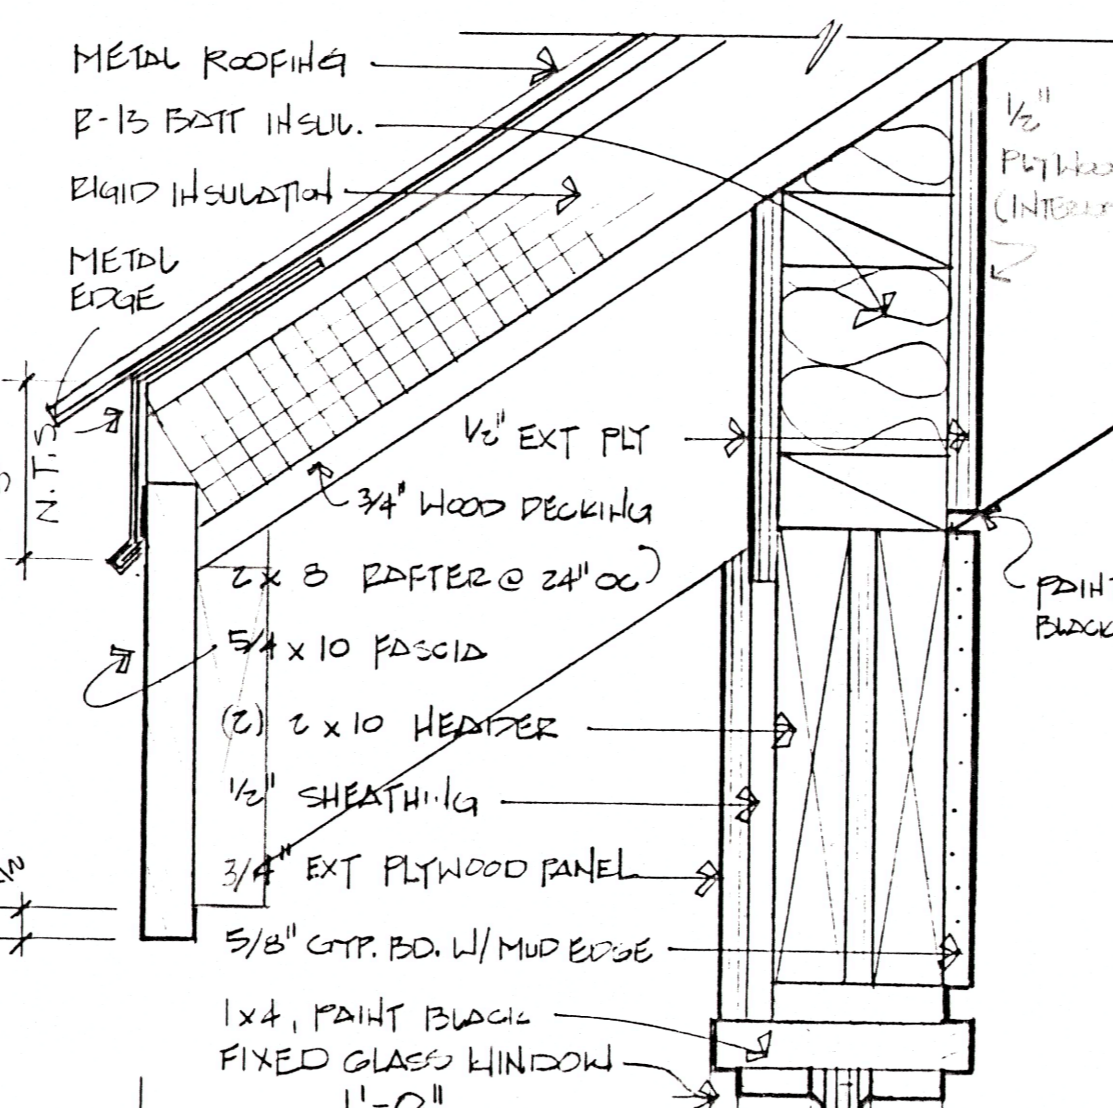 METAL ROOFING
R-13 BATT INSUL.
RIGID INSULATION
METAL
EDGE
1/2"
(INTER
N.T.S
1/2" EXT PLY
3/4" WOOD DECKING
2 x 8 RAFTER @ 24" OC
5/4 x 10 FASCIA
PAINT
BLACK
(2) 2 x 10 HEADER
1/2" SHEATHING
3/4" EXT PLYWOOD PANEL
5/8" GYP. BD. W/ MUD EDGE
1x4, PAINT BLACK
FIXED GLASS WINDOW
1'-0"